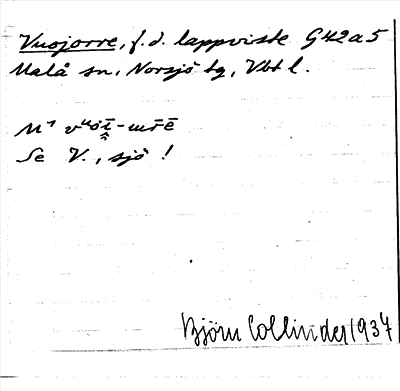 Vuojorre, f.d. lappviste G42a5
Malå sn, Norsjö tg, Vbt l.
Se V., sjö!
Björn Collinder 1937